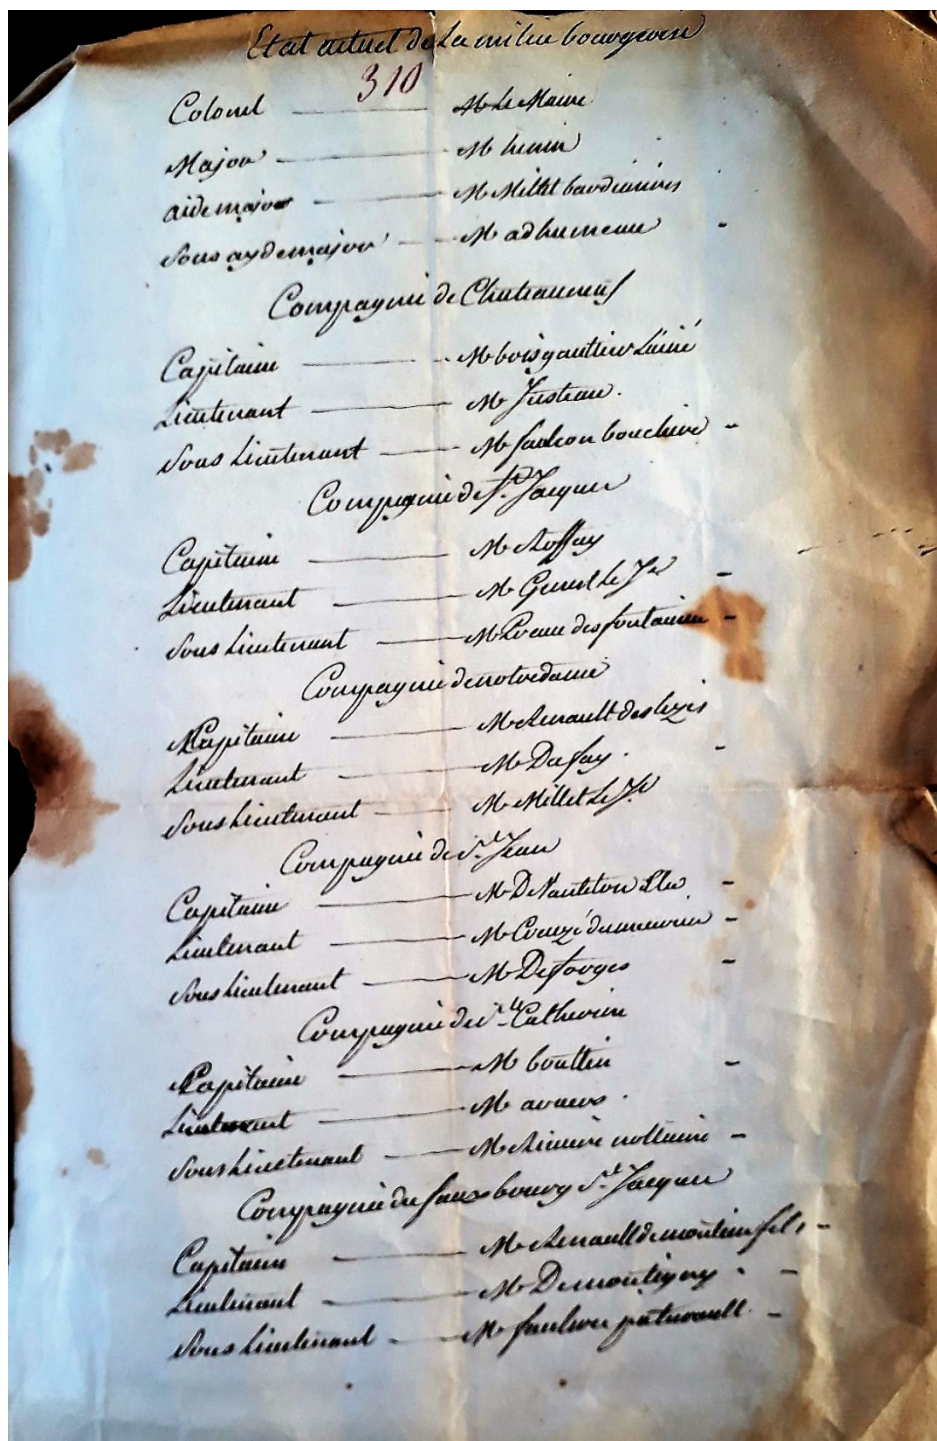 Etat actuel de La milice bourgeoise
310
Colonel — Mr Le Maire
Major — Mr henin
aide major — Mr Millet
Sous aydemajor — Mr adhumeau
Compagnie de Chateauneuf
Capitaine — Mr boisgautier L'ainé
Lieutenant — Mr Justeau.
Sous Lieutenant — Mr faulcon
Compagnie de St. Jacques
Capitaine — Mr Roffay
Lieutenant — Mr Le Je
Sous Lieutenant — Mr Proeau des fontaines
Compagnie de notredame
Capitaine — Mr Arnault des
Lieutenant — Mr Dufay.
Sous Lieutenant — Mr Millet Le Je
Compagnie de St. Jean
Capitaine — Mr De
Lieutenant — Mr Creuzé
Sous Lieutenant — Mr Desforges
Compagnie de Ste Catherine
Capitaine — Mr bouttin
Lieutenant — Mr
Sous Lieutenant — Mr nottaire
Compagnie du fauxbourg St. Jacques
Capitaine — Mr Arnault de fils
Lieutenant — Mr Demontigny
Sous Lieutenant — Mr